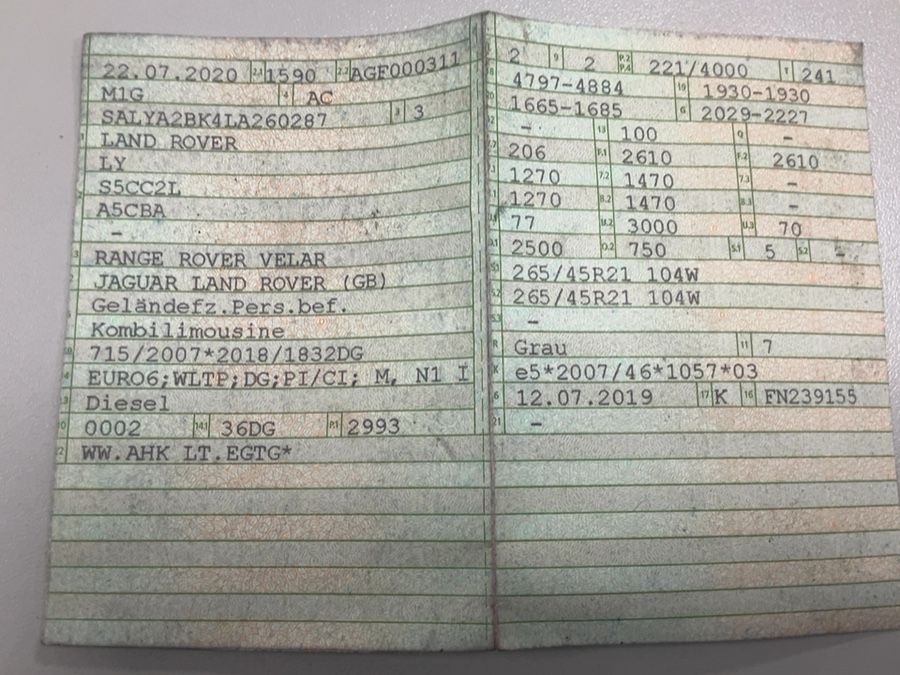 22.07.2020 2.1 1590 2.2 AGF000311
M1G 4 AC
SALYA2BK4LA260287 3 3
LAND ROVER
LY
S5CC2L
A5CBA
–
RANGE ROVER VELAR
JAGUAR LAND ROVER (GB)
Geländefz.Pers.bef.
Kombilimousine
715/2007*2018/1832DG
EURO6;WLTP;DG;PI/CI; M, N1 I
Diesel
0002 14.1 36DG P.1 2993
WW.AHK LT.EGTG*
2 9 2 P.2 P.4 221/4000 T 241
4797-4884 19 1930-1930
1665-1685 G 2029-2227
– 13 100 Q –
206 F.1 2610 F.2 2610
1270 7.2 1470 7.3 –
1270 8.2 1470 8.3 –
77 U.2 3000 U.3 70
2500 O.2 750 S.1 5 S.2 –
265/45R21 104W
265/45R21 104W
–
R Grau 11 7
K e5*2007/46*1057*03
6 12.07.2019 17 K 16 FN239155
21 –